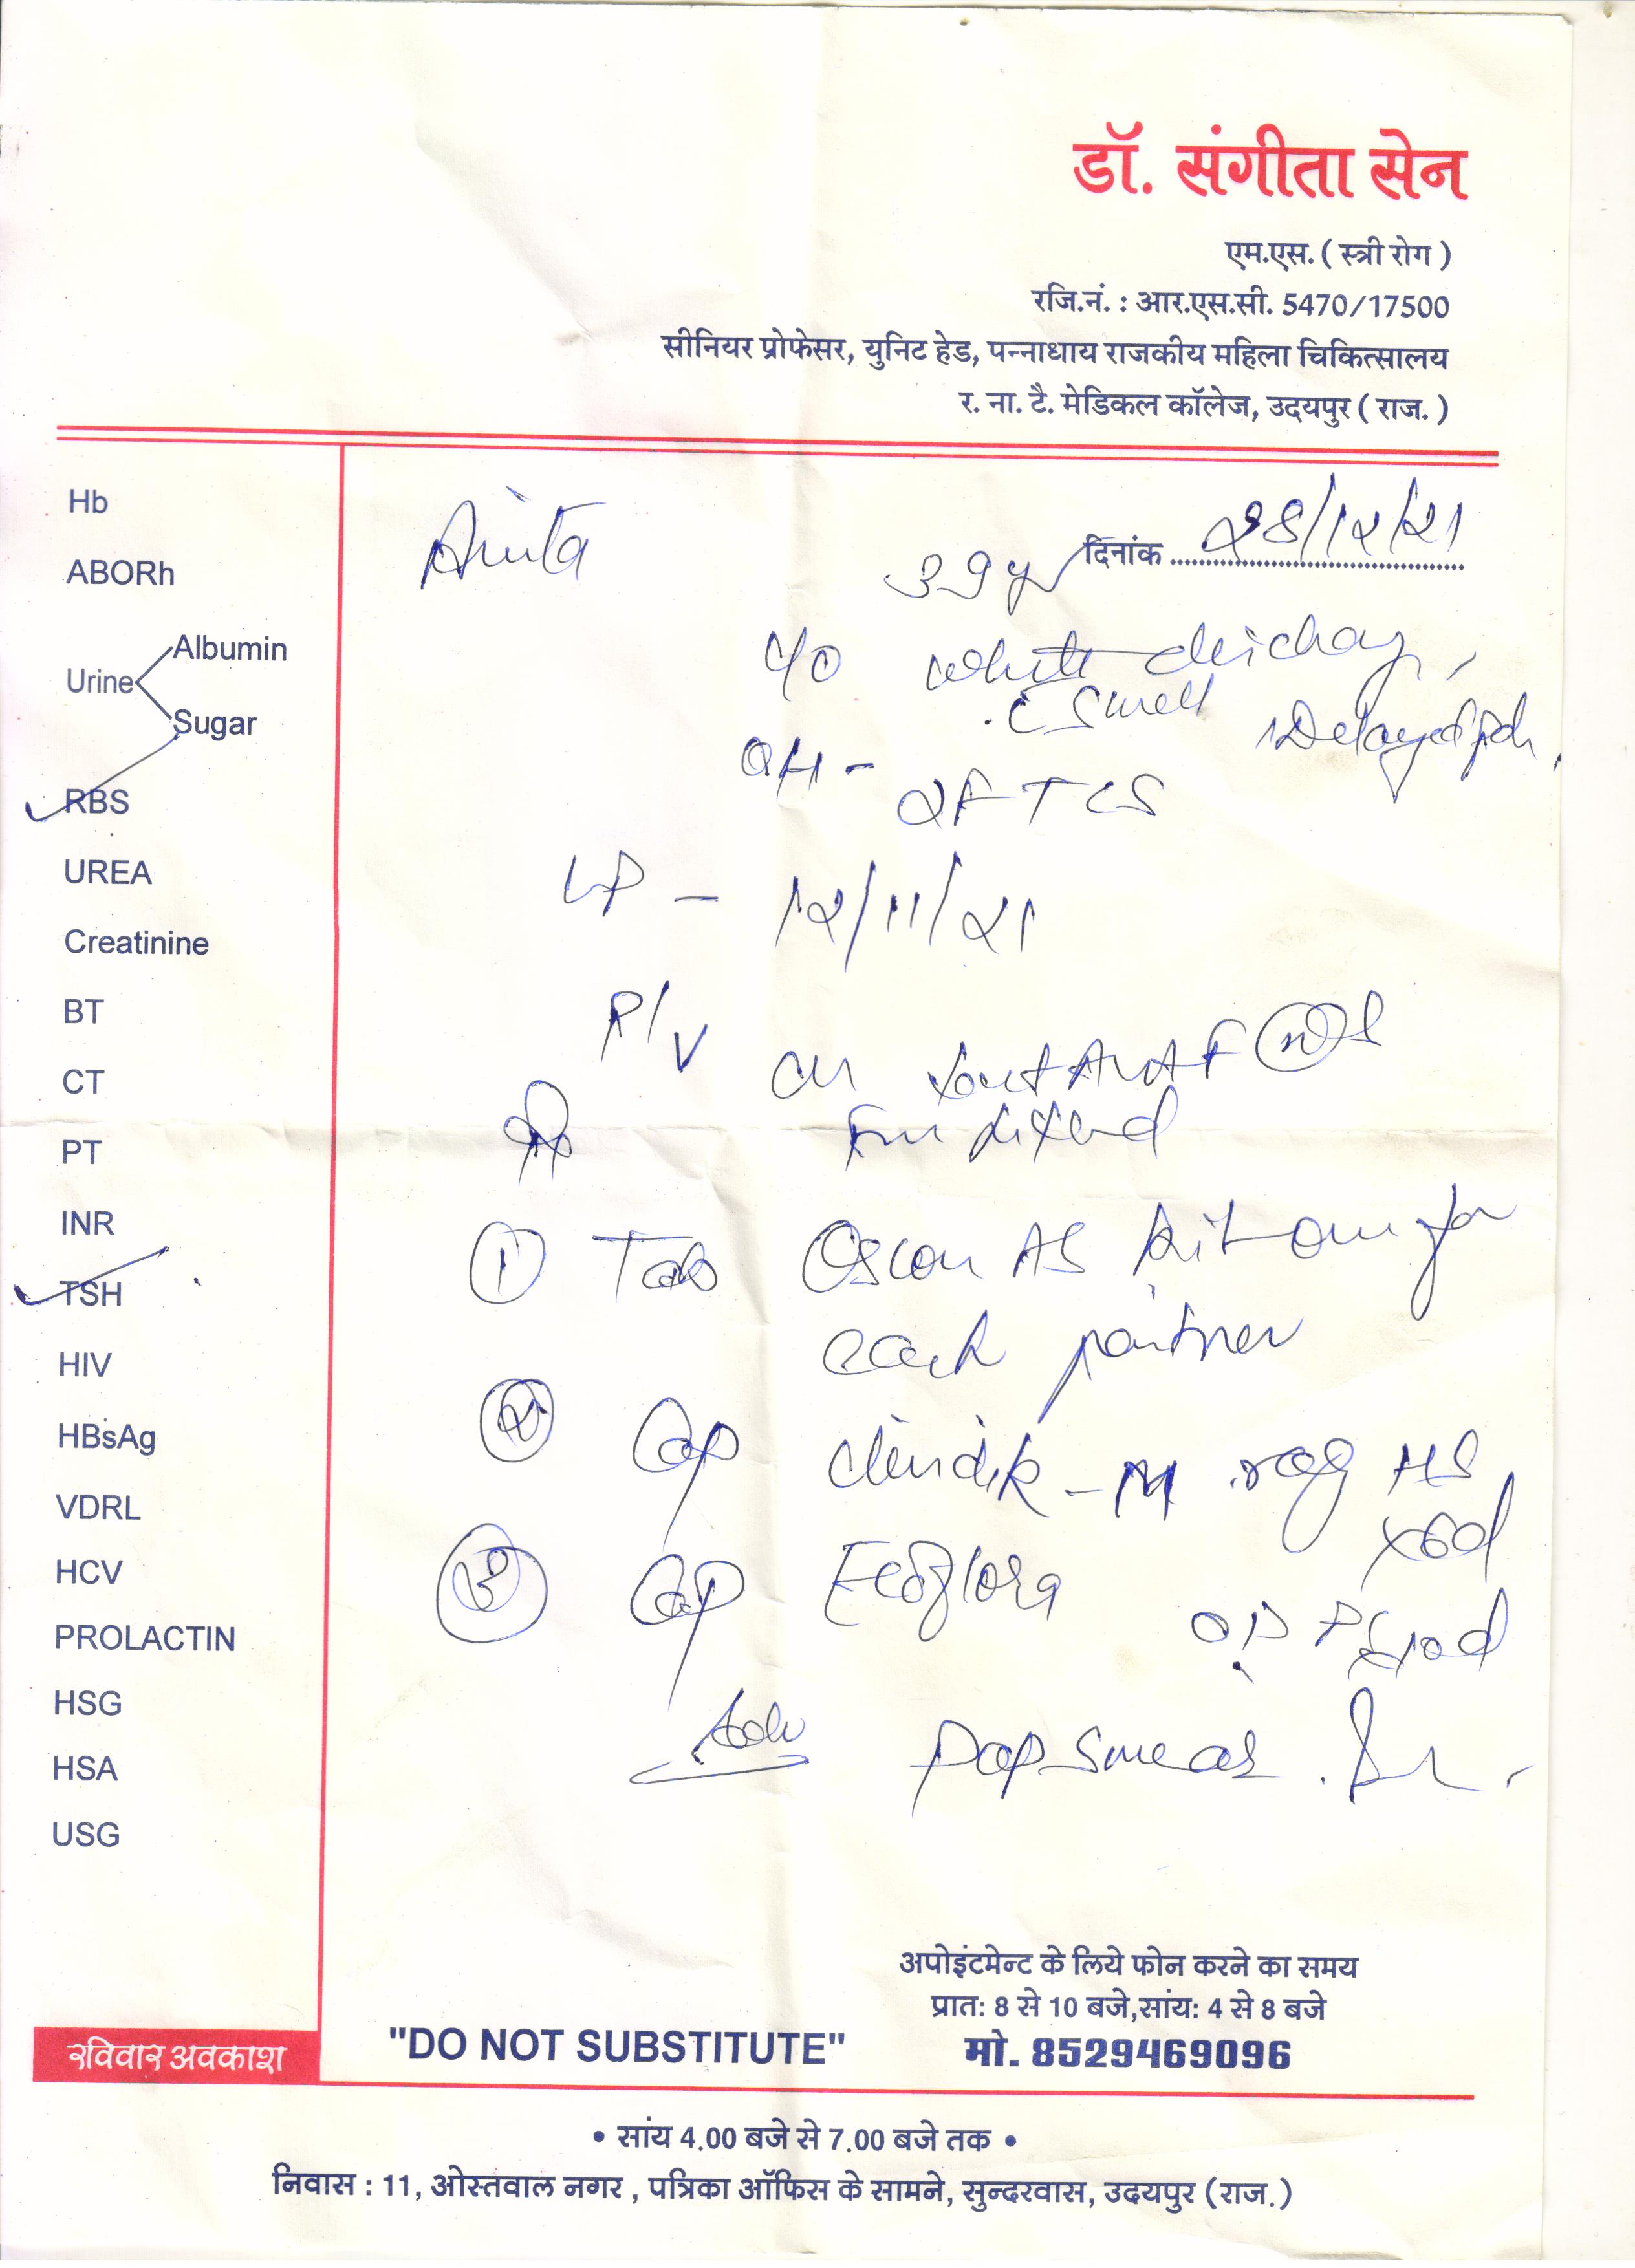 डॉ. संगीता सेन
एम.एस. ( स्त्री रोग )
रजि.नं. : आर.एस.सी. 5470/17500
सीनियर प्रोफेसर, युनिट हेड, पन्नाधाय राजकीय महिला चिकित्सालय
र. ना. टै. मेडिकल कॉलेज, उदयपुर ( राज. )
Hb
ABORh
Urine
Albumin
Sugar
RBS
UREA
Creatinine
BT
CT
PT
INR
TSH
HIV
HBsAg
VDRL
HCV
PROLACTIN
HSG
HSA
USG
Anita
दिनांक 28/12/21
39 yr
c/o white discharge,
c smell Delayed
OH - 2FTCS
LP - 12/11/21
P/V
①  Tab Oscon AS kit one for
each partner
② Cap Clindik-M vag HS
x6d
③ Cap Ecoflora OD x10d
Adv Pap smear.
अपोइंटमेन्ट के लिये फोन करने का समय
प्रातः 8 से 10 बजे,सांयः 4 से 8 बजे
मो. 8529469096
रविवार अवकाश
"DO NOT SUBSTITUTE"
• सांय 4.00 बजे से 7.00 बजे तक •
निवास : 11, ओस्तवाल नगर , पत्रिका ऑफिस के सामने, सुन्दरवास, उदयपुर (राज.)